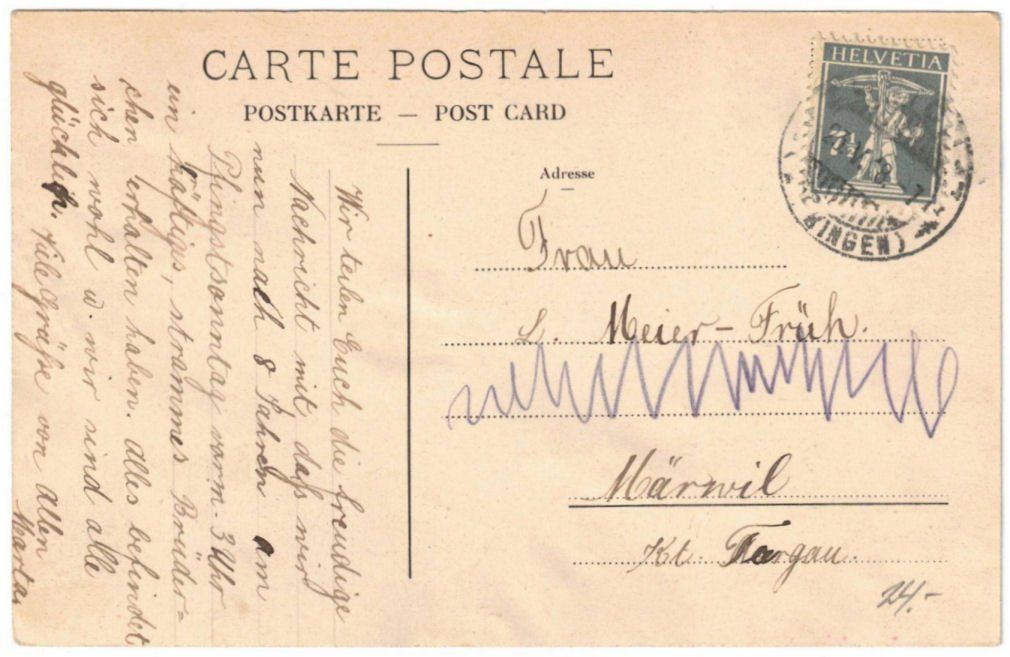 CARTE POSTALE
POSTKARTE — POST CARD
Adresse
HELVETIA
7½
INGEN)
Wir teilen Euch die freudige
Nachricht mit daß wir
nun nach 8 Jahren am
Pfingstsonntag vorm. 3 Uhr
ein kräftiges, strammes Brüder-
chen erhalten haben. Alles befindet
sich wohl u. wir sind alle
glücklich. Viele Grüße von allen
Marta.
Frau
L. Meier-Früh.
Märwil
Kt. Thurgau.
24.-